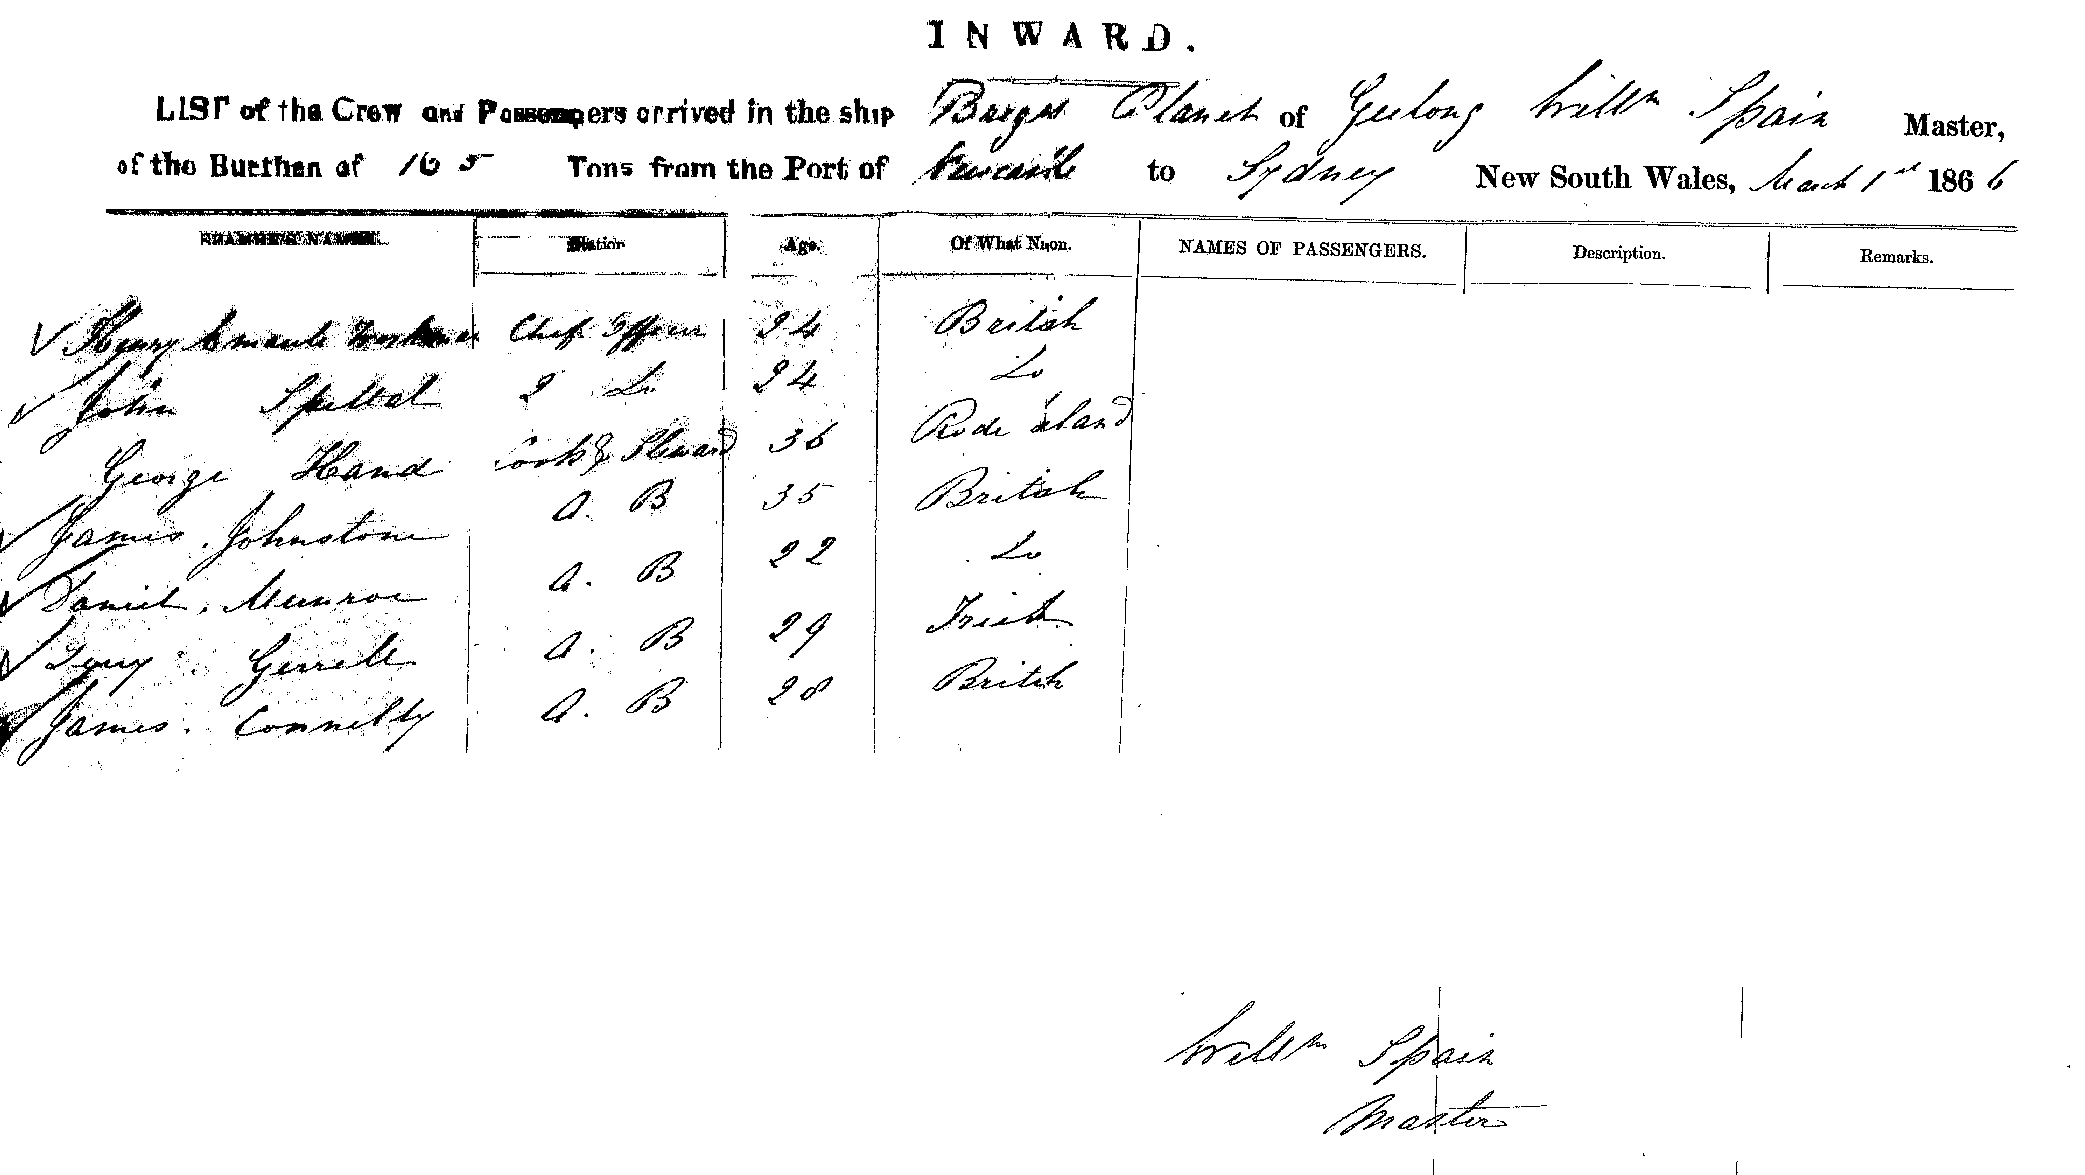 INWARD.
LIST of the Crew and Passengers arrived in the ship Planet of Geelong Willm Spain Master,
of the Burthen of 165 Tons from the Port of Newcastle to Sydney New South Wales, March 1st 1866
Station Age. Of What Nation. NAMES OF PASSENGERS. Description. Remarks.
Henry Chief Officer 24 British
John 2 Do 24 Do
George Hand Cook & Steward 36 Rode island
James Johnstone A. B 35 British
Daniel Munroe A. B 22 Do
A. B 29 Irish
James Connelly A. B 28 British
Willm Spain
Master